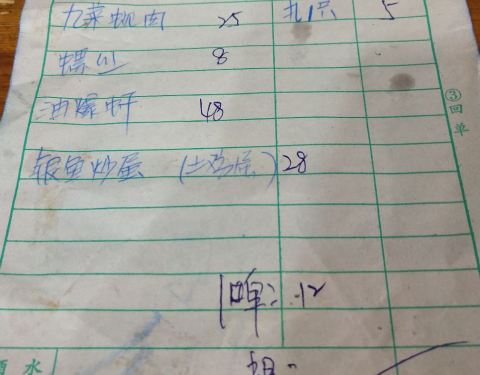 九菜蚬肉 25 扎1只 5
螺丝 8
油爆虾 48
银鱼炒蛋 (土鸡蛋) 28
啤:12
③回单
酒水